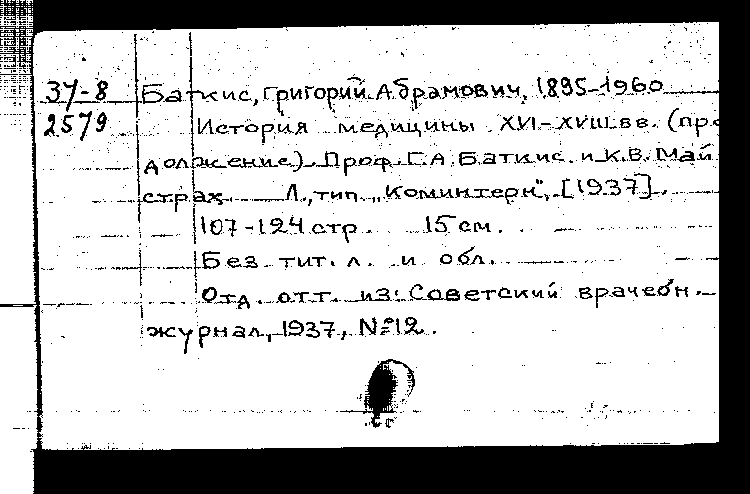 37-8 Баткис, Григорий Абрамович, 1895-1960
2579 История медицины XVI-XVIII вв. (про
должение). Проф. Г.А. Баткис и К.В. Май
страх. Л., тип. „Коминтерн", [1937].
107-124 стр. 15 см.
Без тит. л. и обл.
Отд. отт. из: Советский врачебн.
журнал, 1937, № 12.